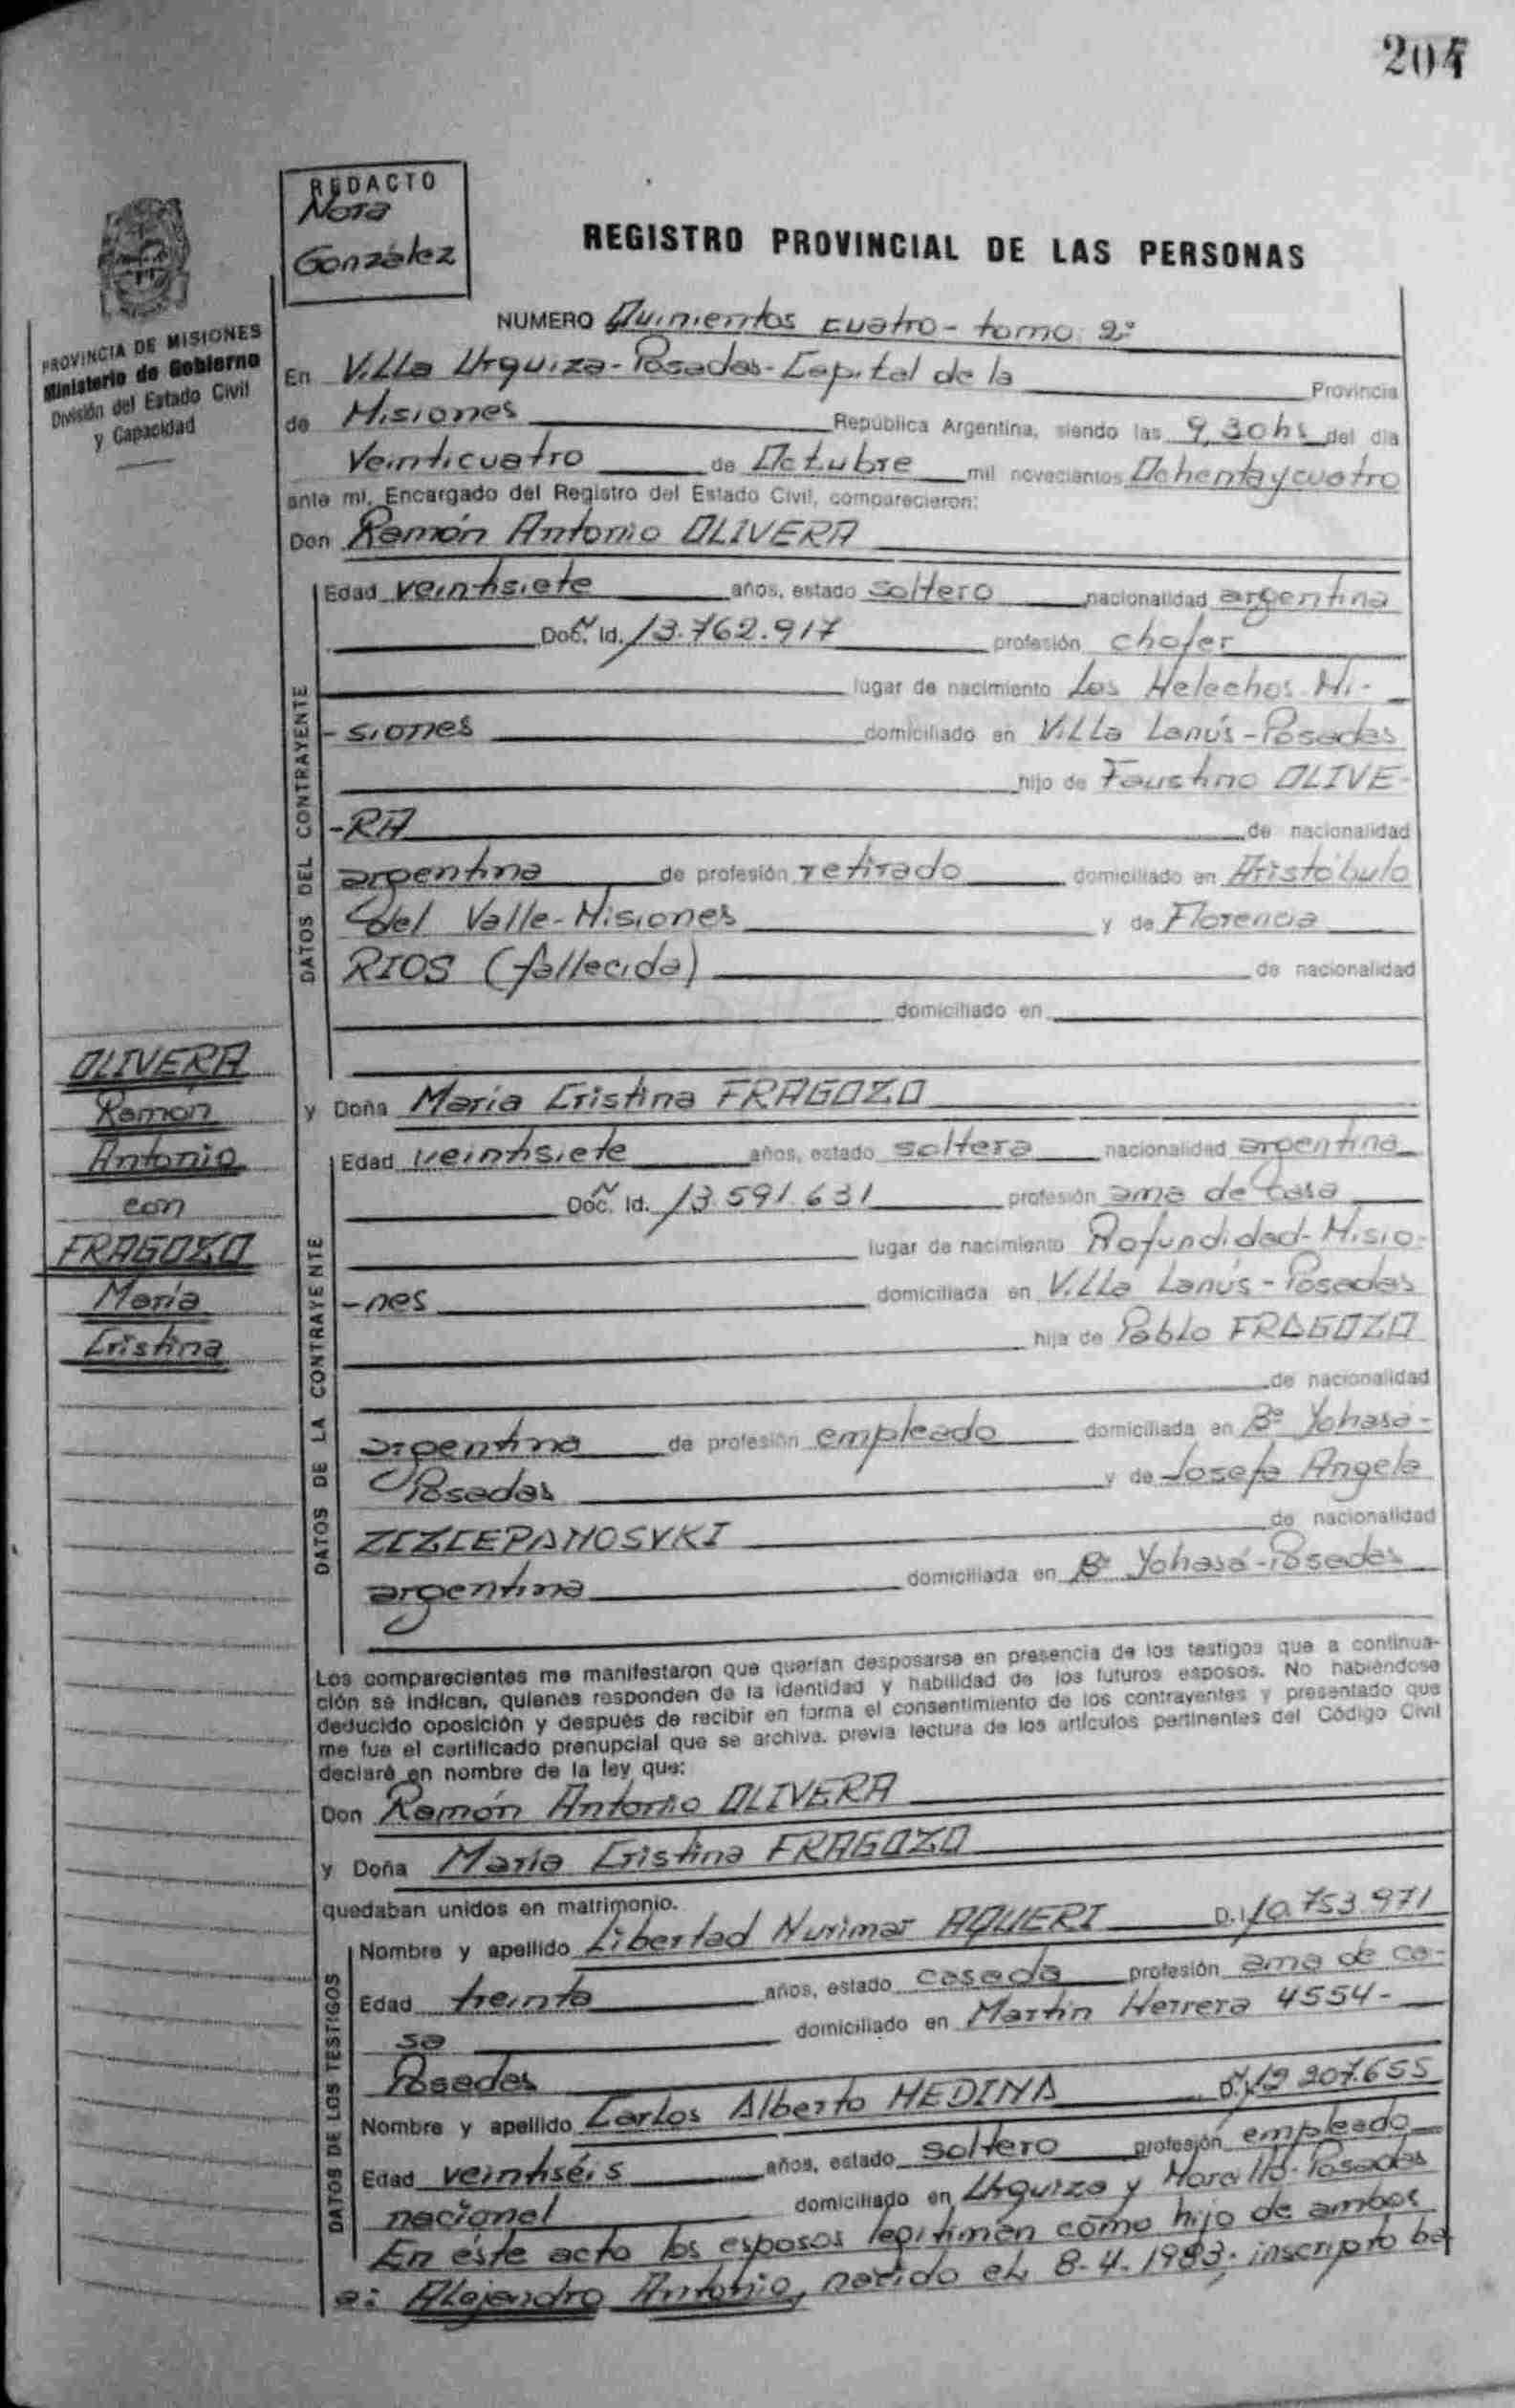 204
REDACTO
Nora
González
REGISTRO PROVINCIAL DE LAS PERSONAS
PROVINCIA DE MISIONES
Ministerio de Gobierno
División del Estado Civil
y Capacidad
NUMERO Quinientos cuatro - tomo 2º
En Villa Urquiza - Posadas - Capital de la Provincia
de Misiones República Argentina, siendo las 9,30 hs del día
Veinticuatro de Octubre mil novecientos Ochenta y cuatro
ante mí, Encargado del Registro del Estado Civil, comparecieron:
Don Ramón Antonio OLIVERA
DATOS DEL CONTRAYENTE
Edad veintisiete años, estado soltero nacionalidad argentina
Doc. Id. Nº 13.762.917 profesión chofer
lugar de nacimiento Los Helechos - Mi-
-siones domiciliado en Villa Lanús - Posadas
hijo de Faustino OLIVE-
-RA de nacionalidad
argentina de profesión retirado domiciliado en Aristóbulo
del Valle - Misiones y de Florencia
RIOS (fallecida) de nacionalidad
domiciliado en
OLIVERA
Ramón
Antonio
con
FRAGOZO
María
Cristina
y Doña María Cristina FRAGOZO
DATOS DE LA CONTRAYENTE
Edad veintisiete años, estado soltera nacionalidad argentina
Doc. Id. Nº 13.591.631 profesión ama de casa
lugar de nacimiento Profundidad - Misio-
-nes domiciliada en Villa Lanús - Posadas
hija de Pablo FRAGOZO
de nacionalidad
argentina de profesión empleado domiciliada en Bº Yohasá -
Posadas y de Josefa Angela
ZCZCEPANOSVKI de nacionalidad
argentina domiciliada en Bº Yohasá - Posadas
Los comparecientes me manifestaron que querían desposarse en presencia de los testigos que a continua-
ción se indican, quienes responden de la identidad y habilidad de los futuros esposos. No habiéndose
deducido oposición y después de recibir en forma el consentimiento de los contrayentes y presentado que
me fue el certificado prenupcial que se archiva, previa lectura de los artículos pertinentes del Código Civil
declaré en nombre de la ley que:
Don Ramón Antonio OLIVERA
y Doña María Cristina FRAGOZO
quedaban unidos en matrimonio.
DATOS DE LOS TESTIGOS
Nombre y apellido Libertad Nurimar AQUERI D.I. 10.753.971
Edad treinta años, estado casada profesión ama de ca-
sa domiciliado en Martín Herrera 4554 -
Posadas
Nombre y apellido Carlos Alberto MEDINA D.I. 12.207.655
Edad veintiséis años, estado soltero profesión empleado
nacional domiciliado en Urquiza y - Posadas
En éste acto los esposos legitiman cómo hijo de ambos
a: Alejandro Antonio, nacido el 8-4-1983; inscripto ba